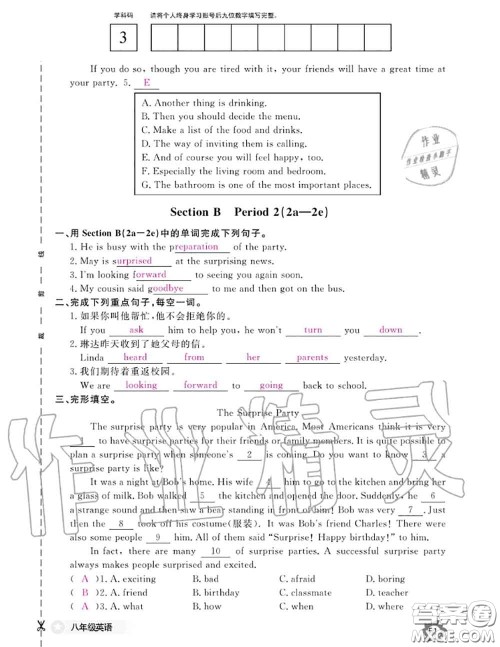 学科码 请将个人终身学习报号后九位数字填写完整。
3
If you do so, though you are tired with it, your friends will have a great time at
your party. 5. E
A. Another thing is drinking.
B. Then you should decide the menu.
C. Make a list of the food and drinks.
D. The way of inviting them is calling.
E. And of course you will feel happy, too.
F. Especially the living room and bedroom.
G. The bathroom is one of the most important places.
Section B Period 2(2a—2e)
一、用 Section B(2a—2e)中的单词完成下列句子。
1. He is busy with the preparation of the party.
2. May is surprised at the surprising news.
3. I'm looking forward to seeing you again soon.
4. My cousin said goodbye to me and then got on the bus.
二、完成下列重点句子,每空一词。
1. 如果你叫他帮忙,他不会拒绝你的。
If you ask him to help you, he won't turn you down.
2. 琳达昨天收到了她父母的信。
Linda heard from her parents yesterday.
3. 我们期待着重返校园。
We are looking forward to going back to school.
三、完形填空。
The Surprise Party
The surprise party is very popular in America. Most Americans think it is very
wonderful to have surprise parties for their friends or family members. It is quite possible to
plan a surprise party when someone's 2 is coming. Do you want to know 3 a
surprise party is like?
It was a night at Bob's home. His wife 4 him to go to the kitchen and bring her
a glass of milk. Bob walked 5 the kitchen and opened the door. Suddenly, he 6
a strange sound and then saw a bear standing in front of him! Bob was very 7 . Just
then the 8 took off his costume(服装). It was Bob's friend Charles! There were
also some people 9 him. All of them said "Surprise! Happy birthday!" to him.
In fact, there are many 10 of surprise parties. A successful surprise party
always makes people surprised and excited.
( A )1. A. exciting B. bad C. afraid D. boring
( B )2. A. friend B. birthday C. classmate D. teacher
( A )3. A. what B. how C. when D. where
八年级英语
作业精灵
答案圈